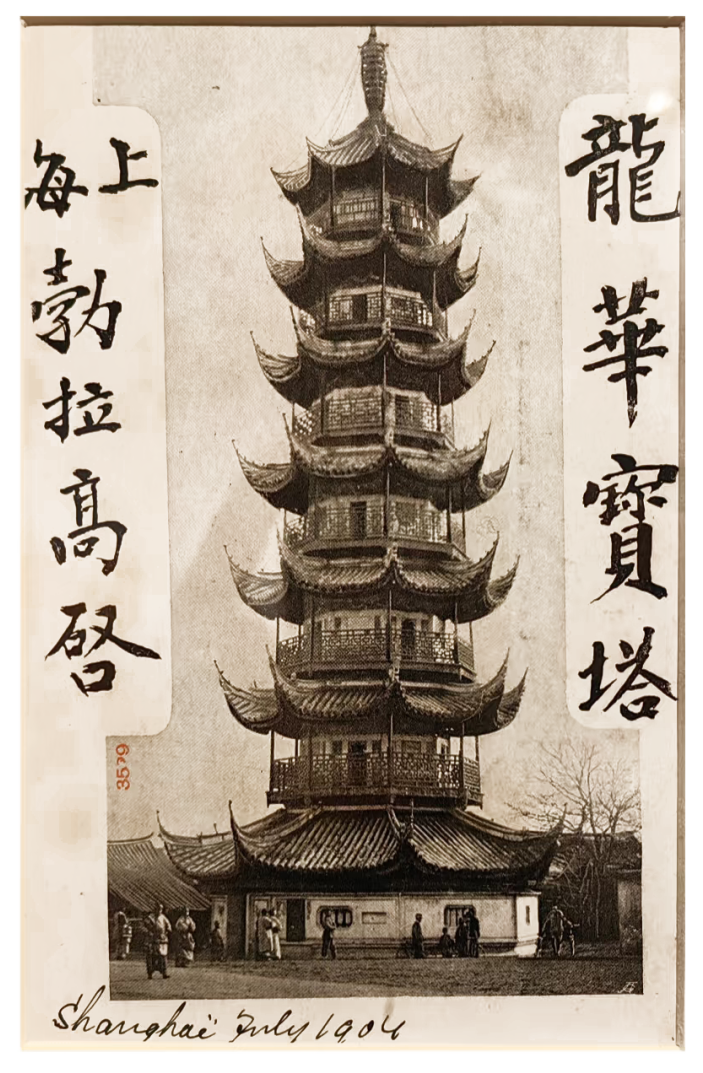 龍華寶塔
上海
勃拉高啓
3579
Shanghaï July 1904